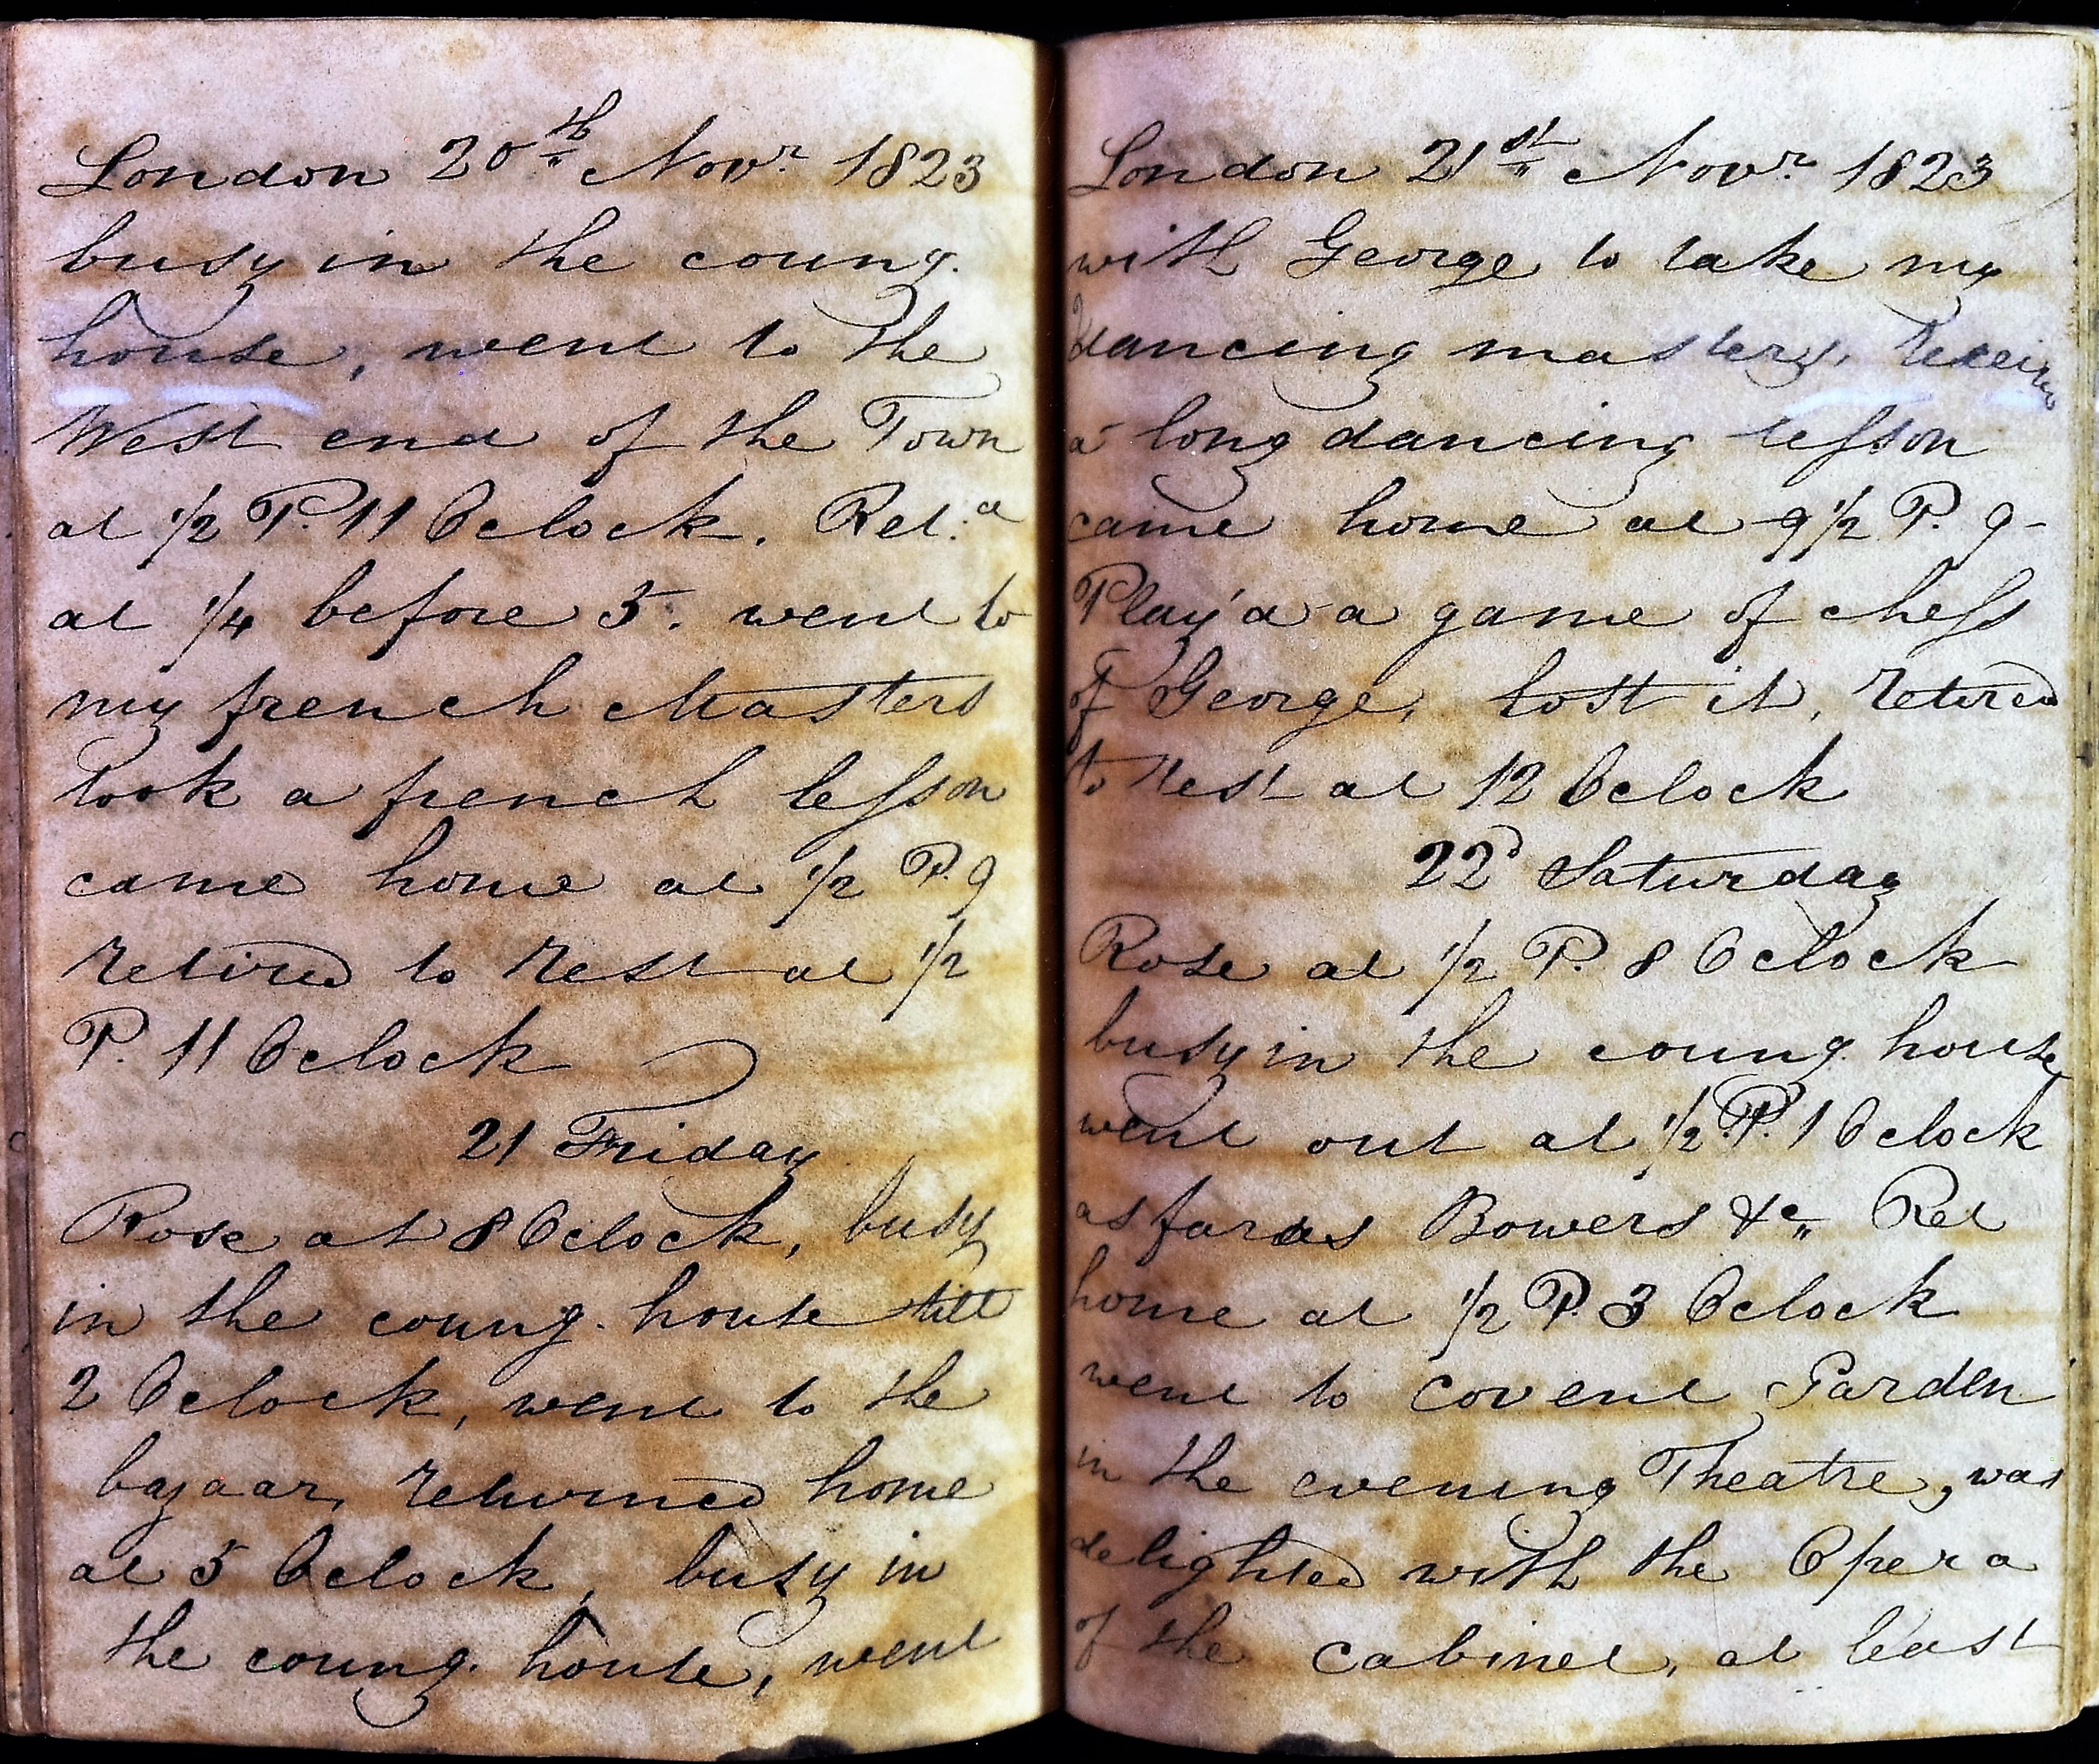 London 20th Novr. 1823
busy in the coung.
house, went to the
West end of the Town
at 1/2 P. 11 Oclock. Ret.d
at 1/4 before 5. went to
my french Masters
took a french lesson
came home at 1/2 P. 9
retired to rest at 1/2
P. 11 Oclock
21 Friday
Rose at 8 Oclock, busy
in the coung. house till
2 Oclock, went to the
bazaar, returned home
at 5 Oclock, busy in
the coung. house, went
London 21st Novr. 1823
with George to take my
dancing masters,
a long dancing lesson
came home at 9 1/2 P. 9-
Play'd a game of chess
of George, lost it, retired
to rest at 12 Oclock
22d Saturday
Rose at 1/2 P. 8 Oclock
busy in the coung. house
went out at 1/2 P. 1 Oclock
as far as Bowers &c. Ret
home at 1/2 P. 3 Oclock
went to Covent Garden
in the evening Theatre, was
delighted with the Opera
of the cabinet, at least